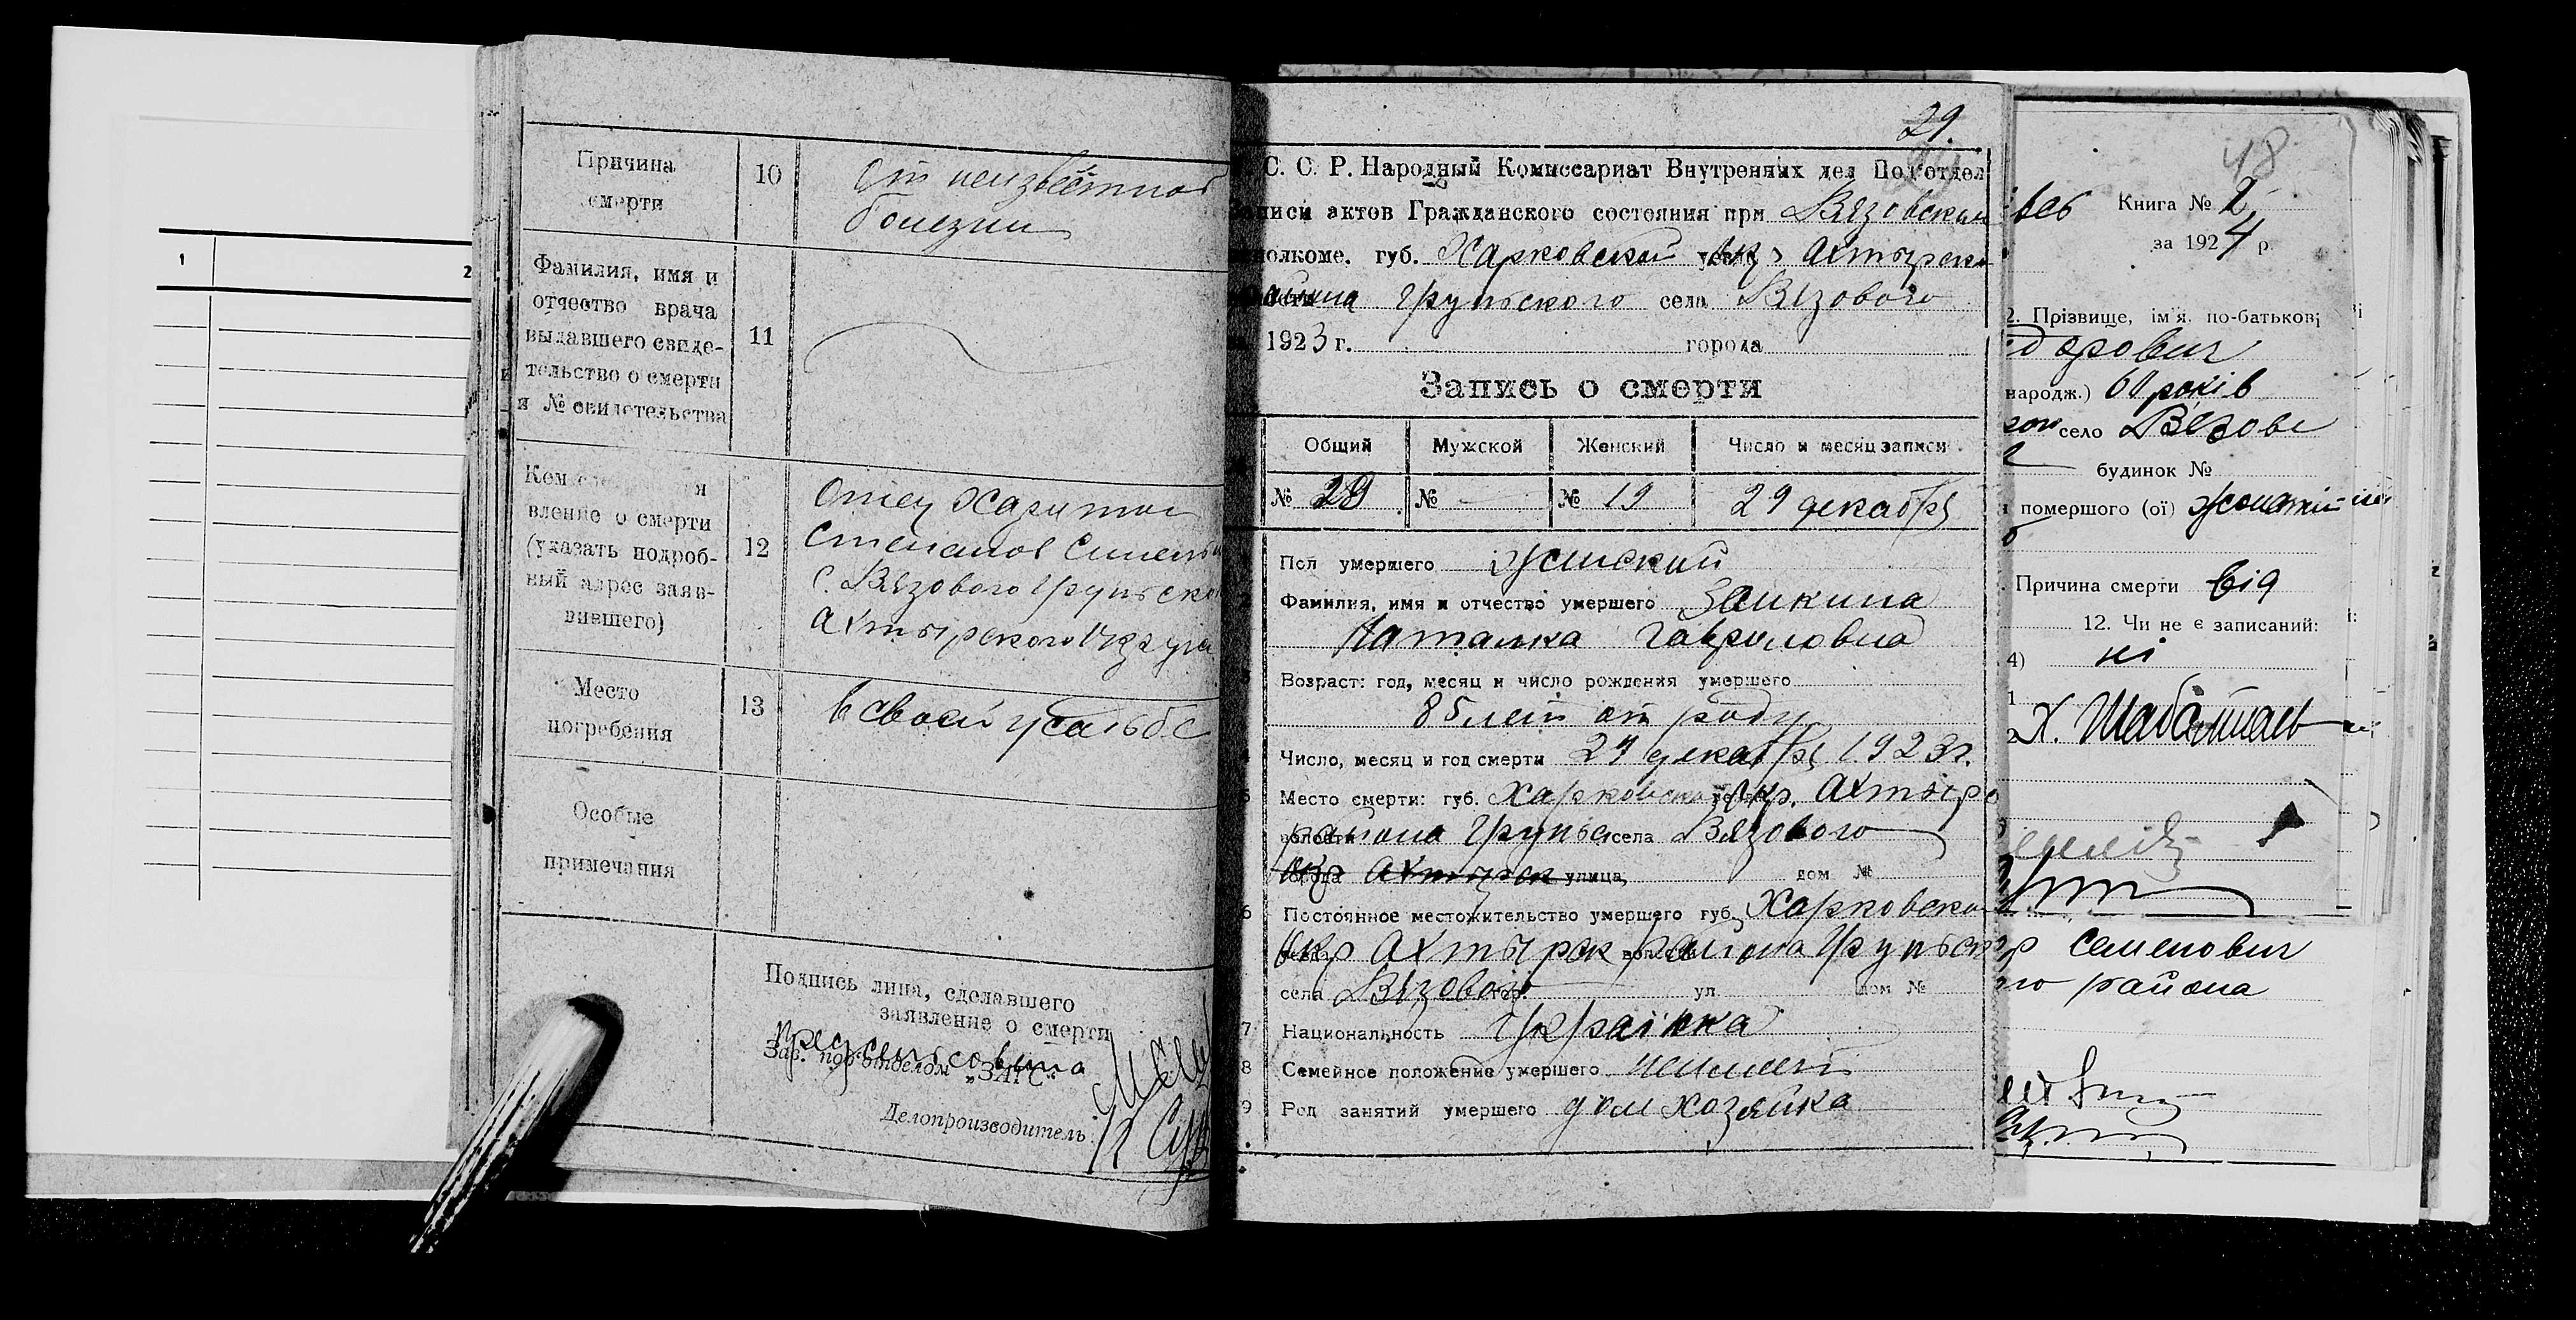 1
2
Причина
смерти
10
От неизвестной
болезни
Фамилия, имя и
отчество врача
выдавшего свиде-
тельство о смерти
и № свидетельства
11
вление о смерти
(указать подроб-
ный адрес заяв-
вившего)
12
Отец Харитон
Степанов
с. Вязового Груньско
Ахтырского
Место
погребения
13
в своей усадьбе
Особые
примечания
Подпись лица, сделавшего
заявление о смерти
Предсельсовета
Зав. подотделом „ЗАГС“
Делопроизводитель
29
С. С. Р. Народный Комиссариат Внутренних дел Подотдел
записи актов Гражданского состояния при Вязовском
исполкоме. губ. Харковской окр Ахтырско
района Груньского села Вязового
1923 г. города
Запись о смерти
Общий Мужской Женский Число и месяц записи
№ 29 № - № 19 29 декабря
Пол умершего Женский
Фамилия, имя и отчество умершего Заикина
Наталка Гавриловна
Возраст: год, месяц и число рождения умершего
85 лет от роду
Число, месяц и год смерти 27 декабря 1923 г.
Место смерти: губ. Харковской окр. Ахтыр
района Груньс села Вязового
окр Ахтырск улица, дом №
6 Постоянное местожительство умершего губ. Харковской
окр Ахтырск района Груньск
села Вязового гор. ул дом №
7 Национальность Українка
8 Семейное положение умершего
9 Род занятий умершего дом хозяйка
48
Книга № 2
за 1924 р.
2. Прізвище, ім'я, по-батькові
дорович
народж.) 60 років
село Вязове
будинок №
помершого (ої)
Причина смерти від
12. Чи не є записаний:
4) ні
1
2 Х.
Семенович
го района